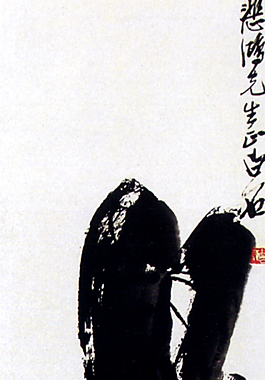 悲鸿先生正白石